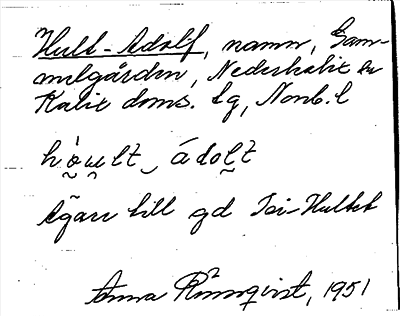 Hult-Adolf, namn, Gam-
melgården, Nederkalix sn
Kalix doms. lg, Norrb. l
Ägare till gd Isi-Hultet
Anna Rönnqvist, 1951